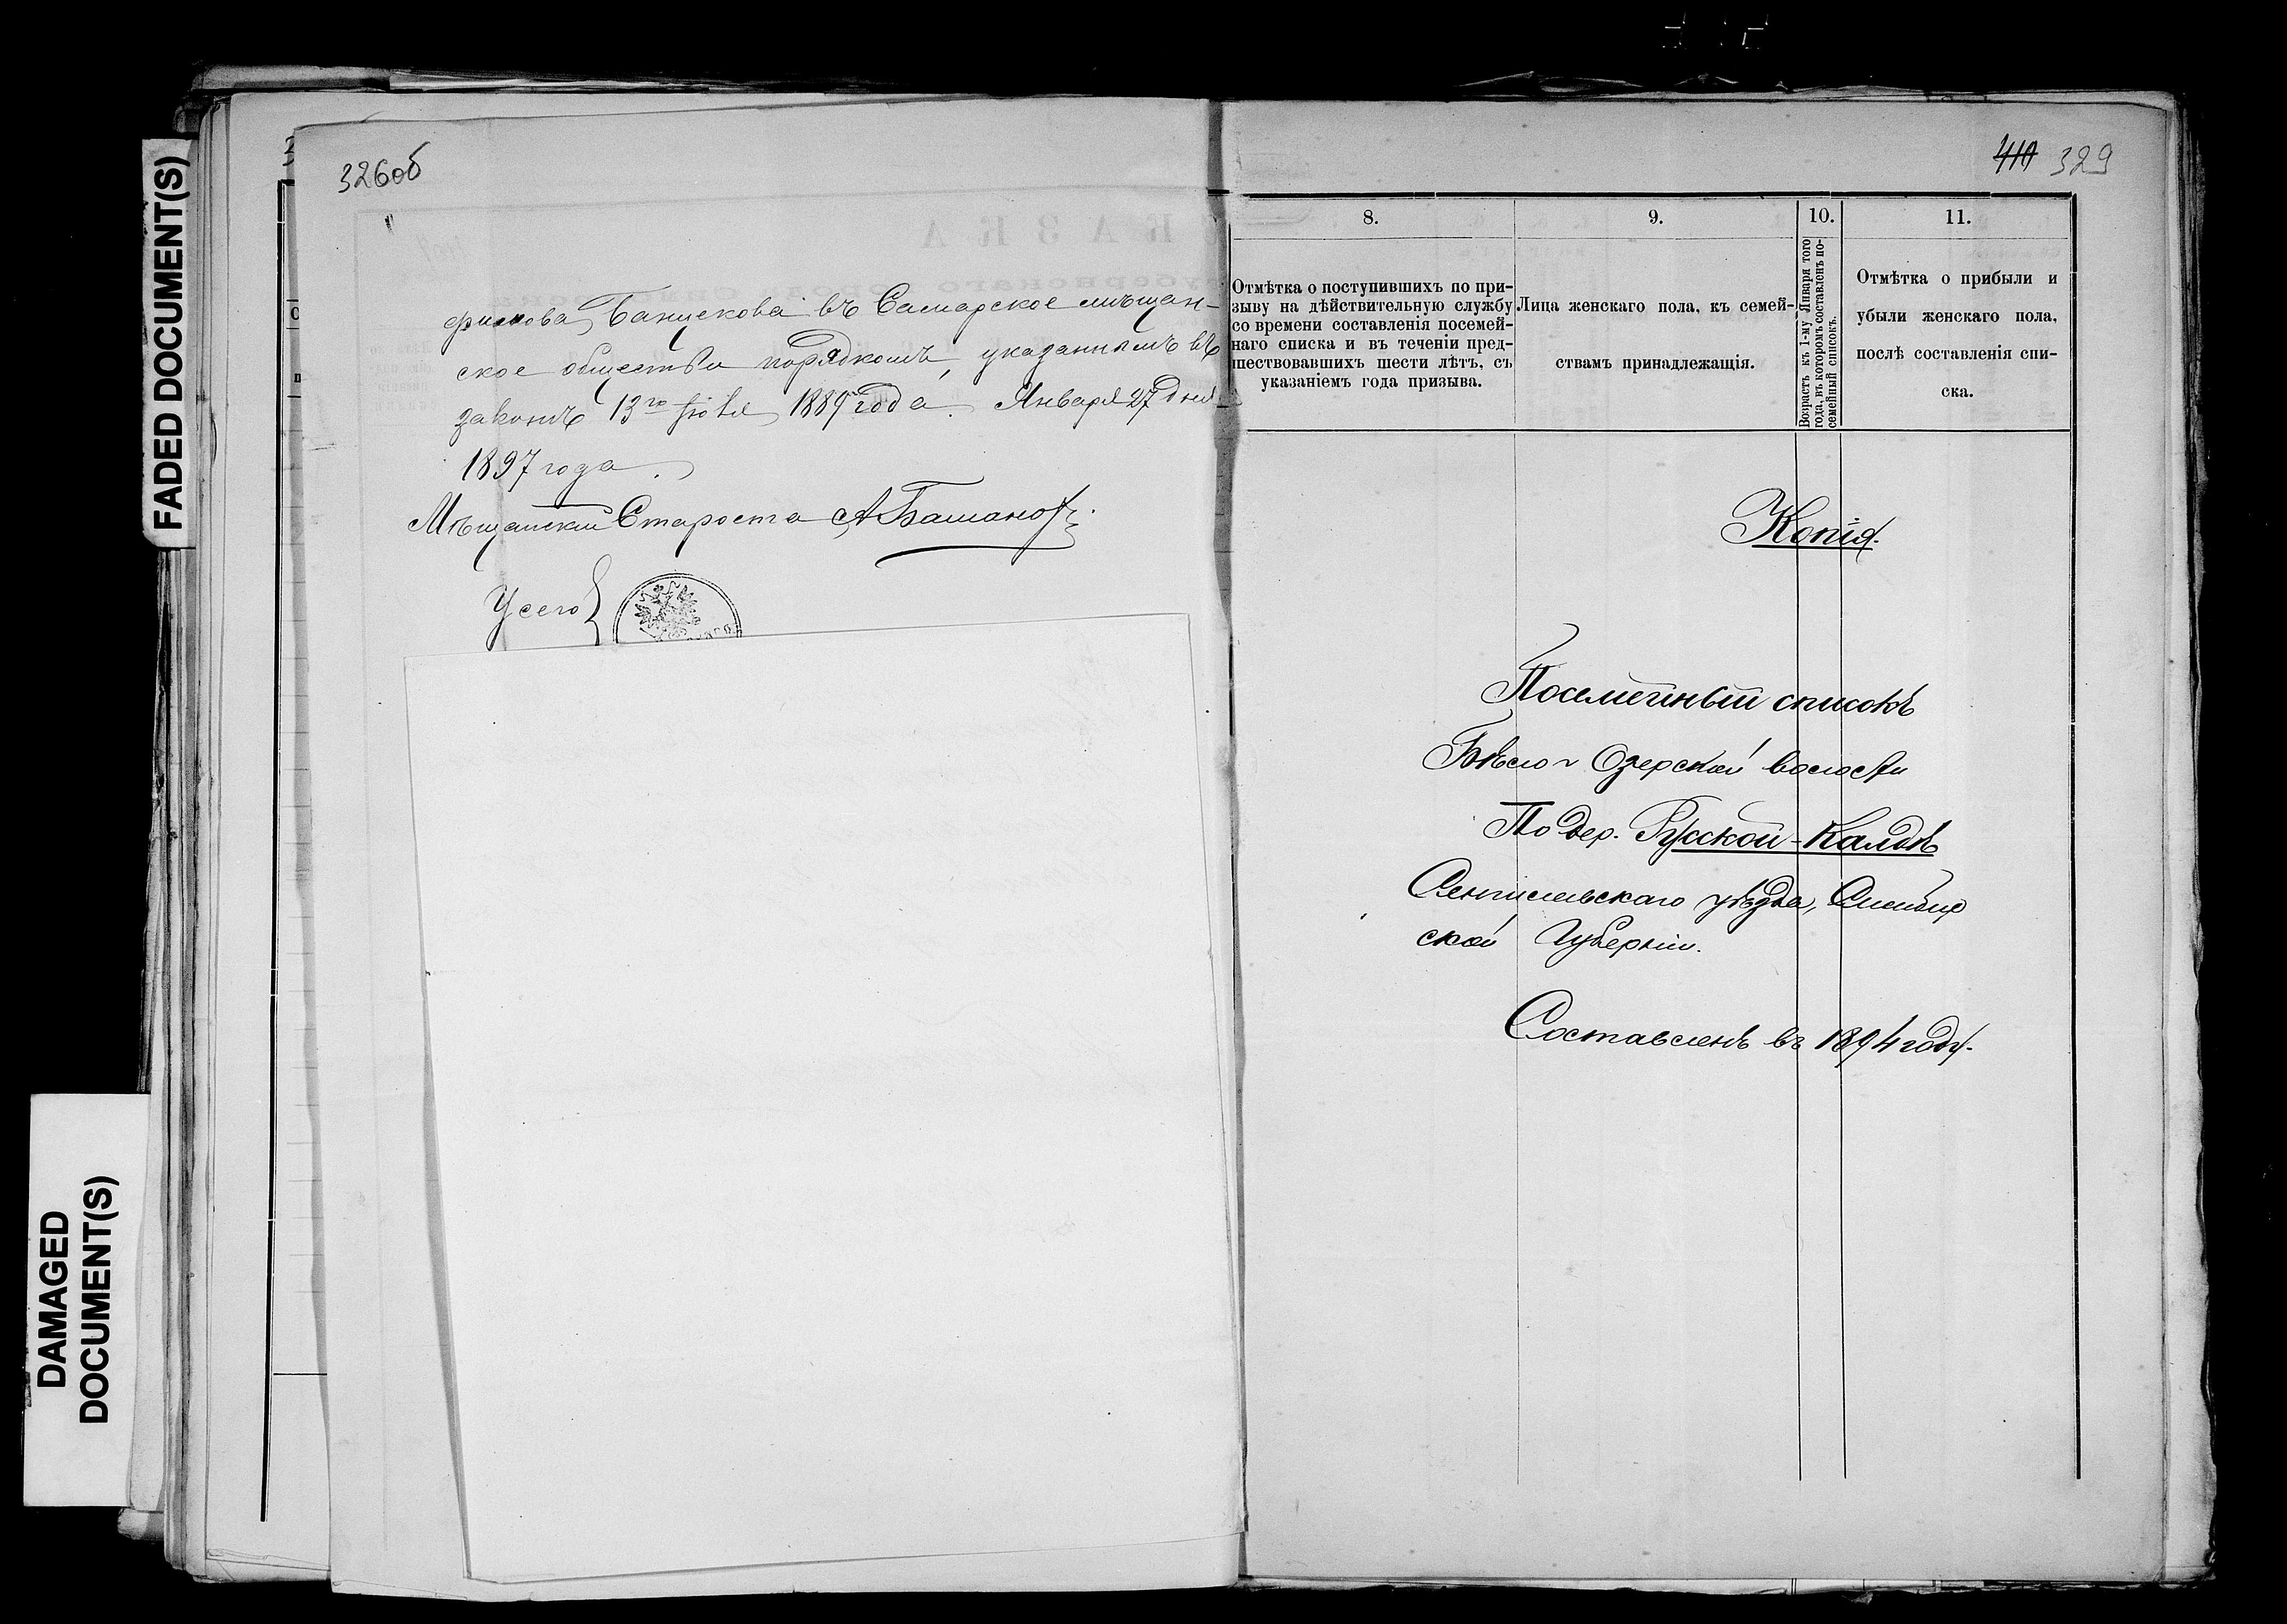 FADED DOCUMENT(S)
DAMAGED
DOCUMENT(S)
326об
въ Самарское мѣщан-
ское общество порядкомъ, указаннымъ въ
законѣ 13го Іюля 1889 года. Января 27 дня
1897 года.
Мѣщанскій Староста
У сего
410 329
8.
9.
10.
11.
Отмѣтка о поступившихъ по при-
зыву на дѣйствительную службу
со времени составленія посемей-
наго списка и въ теченіи пред-
шествовавшихъ шести лѣтъ, съ
указаніемъ года призыва.
Лица женскаго пола, къ семей-
ствамъ принадлежащія.
Возрастъ къ 1-му Января того
года, въ которомъ составленъ по-
семейный списокъ.
Отмѣтка о прибыли и
убыли женскаго пола,
послѣ составленія спи-
ска.
Копія.
Посемейный списокъ
Бѣло-Озерской волости
По дер. Русской-Калдѣ
Сенгилевскаго уѣзда, Симбир
ской Губерніи.
Составленъ въ 1894 году.